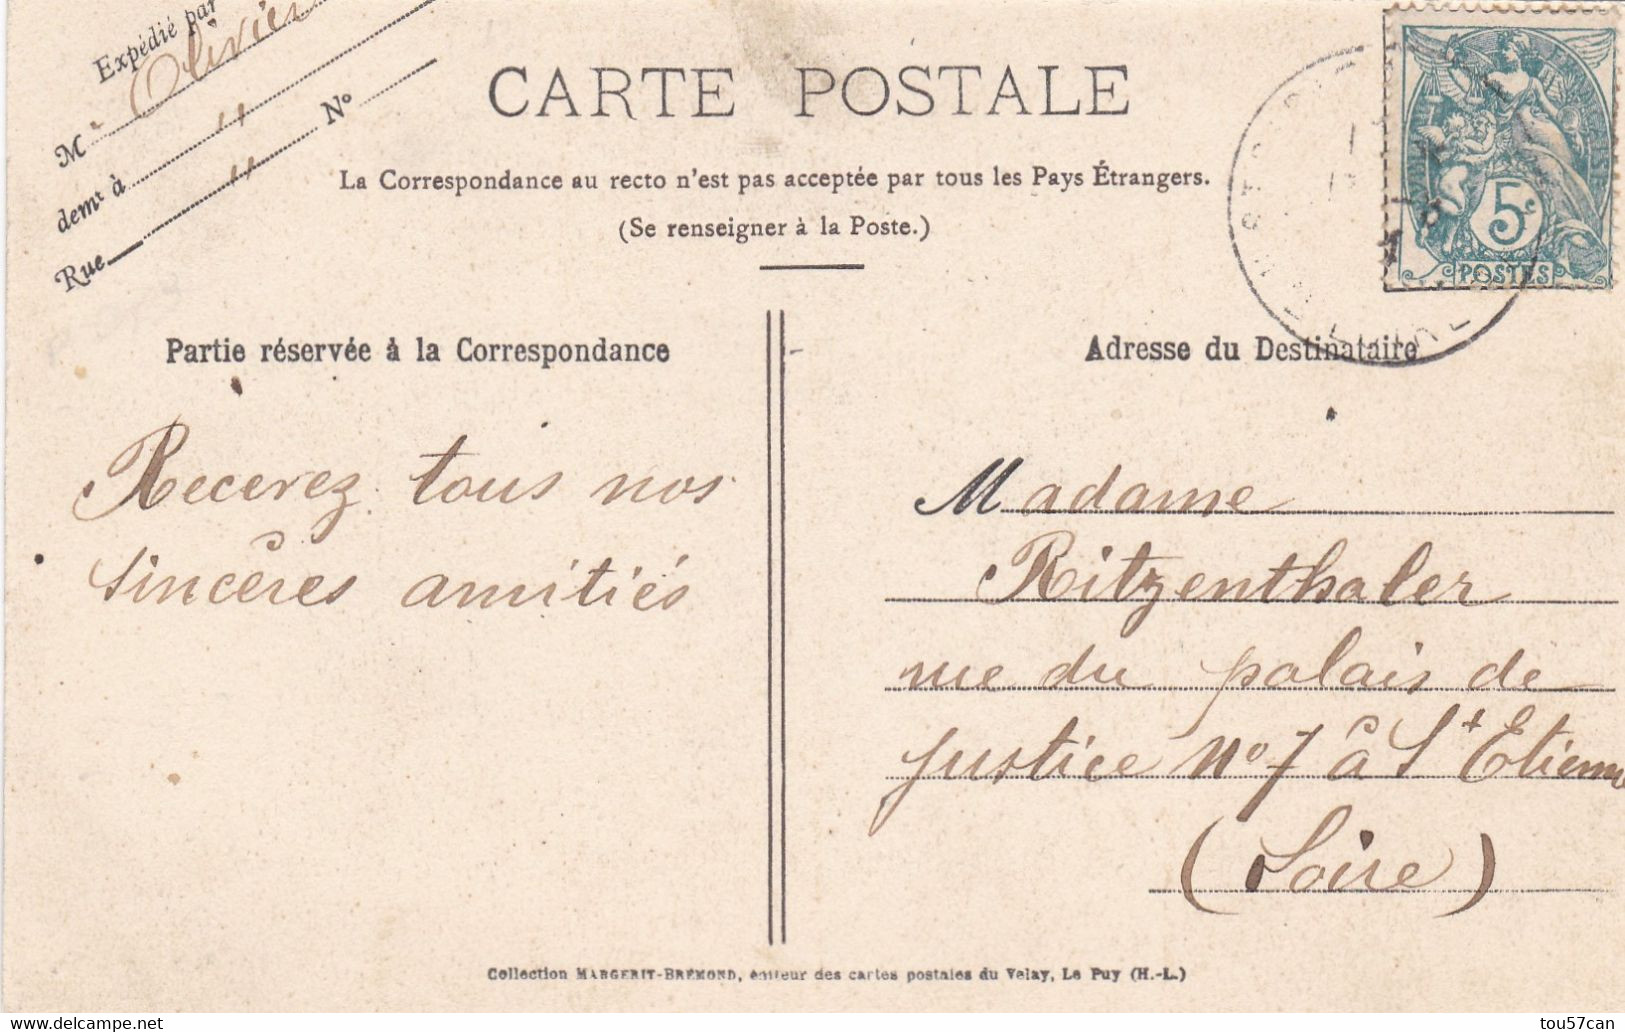 Expédié par
M. Olivier
demt à 11
Rue 11 No
CARTE POSTALE
La Correspondance au recto n'est pas acceptée par tous les Pays Étrangers.
(Se renseigner à la Poste.)
5c
POSTES
Partie réservée à la Correspondance
Adresse du Destinataire
Recevez tous nos
sincères amitiés
Madame
Ritzenthaler
rue du palais de
justice No 7 à St Etienne
(Loire)
Collection MARGERIT-BRÉMOND, éditeur des cartes postales du Velay, Le Puy (H.-L.)
tou57can